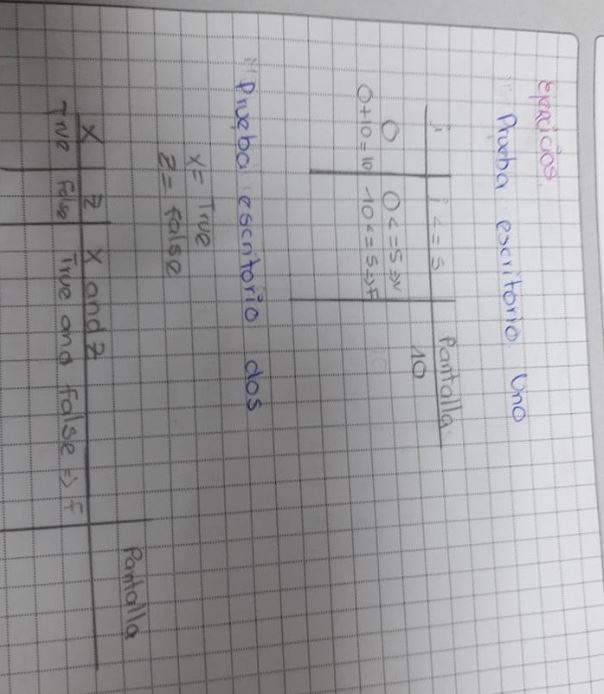 ejercicios.
"Prueba escritorio Uno
i | i <= 5 | Pantalla
0 | 0 <= 5 => V | 10
0+10=10 | 10 <= 5 => F
"Prueba escritorio dos
x = True
z = false
Pantalla
x | z | x and z
True | False | True and false => F